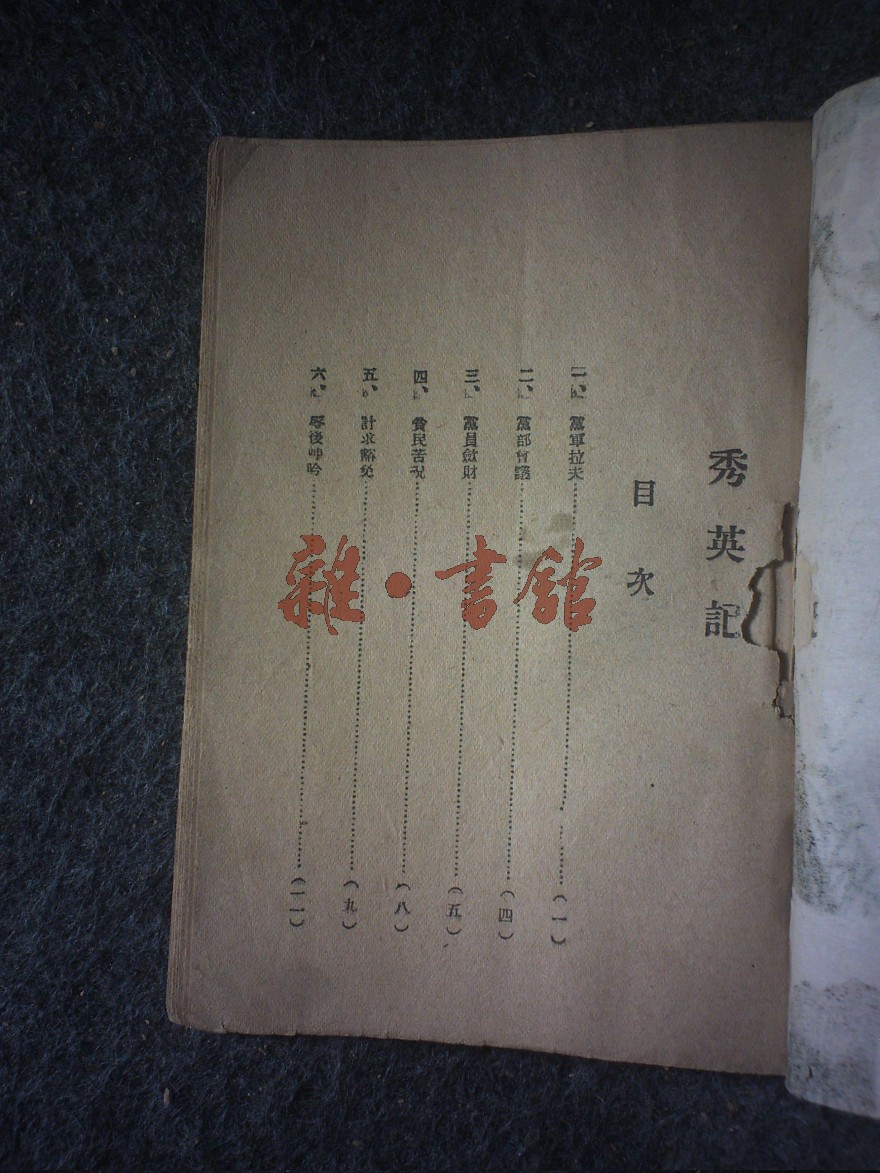 秀英記
目次
一、黨軍拉夫(一)
二、黨部會議(四)
三、黨員斂財(五)
四、貧民苦況(八)
五、計求豁免(九)
六、辱後呻吟(一一)
雜·書館